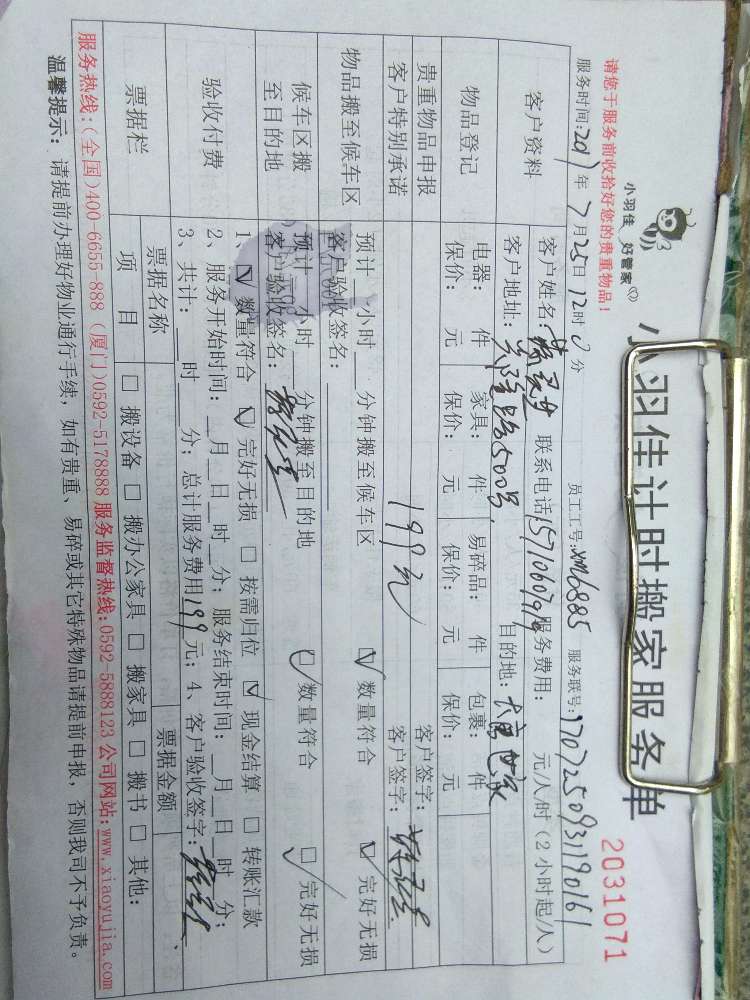 小羽佳 好管家
小羽佳计时搬家服务单
2031071
请您于服务前收拾好您的贵重物品！
服务时间：2017年7月25日12时0分 员工工号：xm6885 服务联号：170725093119016
客户资料
客户姓名： 联系电话 服务费用： 元/人/时（2小时起/人）
客户地址： 路500号 目的地：
物品登记
电器： 件 家具： 件 易碎品： 件 包裹： 件
保价： 元 保价： 元 保价： 元 保价： 元
贵重物品申报 客户签字：
客户特别承诺 199元 客户签字：
物品搬至候车区
预计__小时__分钟搬至候车区 数量符合 完好无损
客户验收签名：
候车区搬至目的地
预计__小时__分钟搬至目的地 数量符合 完好无损
客户验收签名：
验收付费
1、 数量符合 完好无损 □ 按需归位 现金结算 □ 转账汇款
2、服务开始时间：__月__日__时__分；服务结束时间：__月__日__时__分；
3、共计：__时__分；总计服务费用199元；4、客户验收签字：
票据栏
票据名称 票据金额
项目 □ 搬设备 □ 搬办公家具 □ 搬家具 □ 搬书 □ 其他：
服务热线：(全国)400-6655-888 (厦门)0592-5178888 服务监督热线：0592-5888123 公司网站：www.xiaoyujia.com
温馨提示：请提前办理好物业通行手续，如有贵重、易碎或其它特殊物品请提前申报，否则我司不予负责。